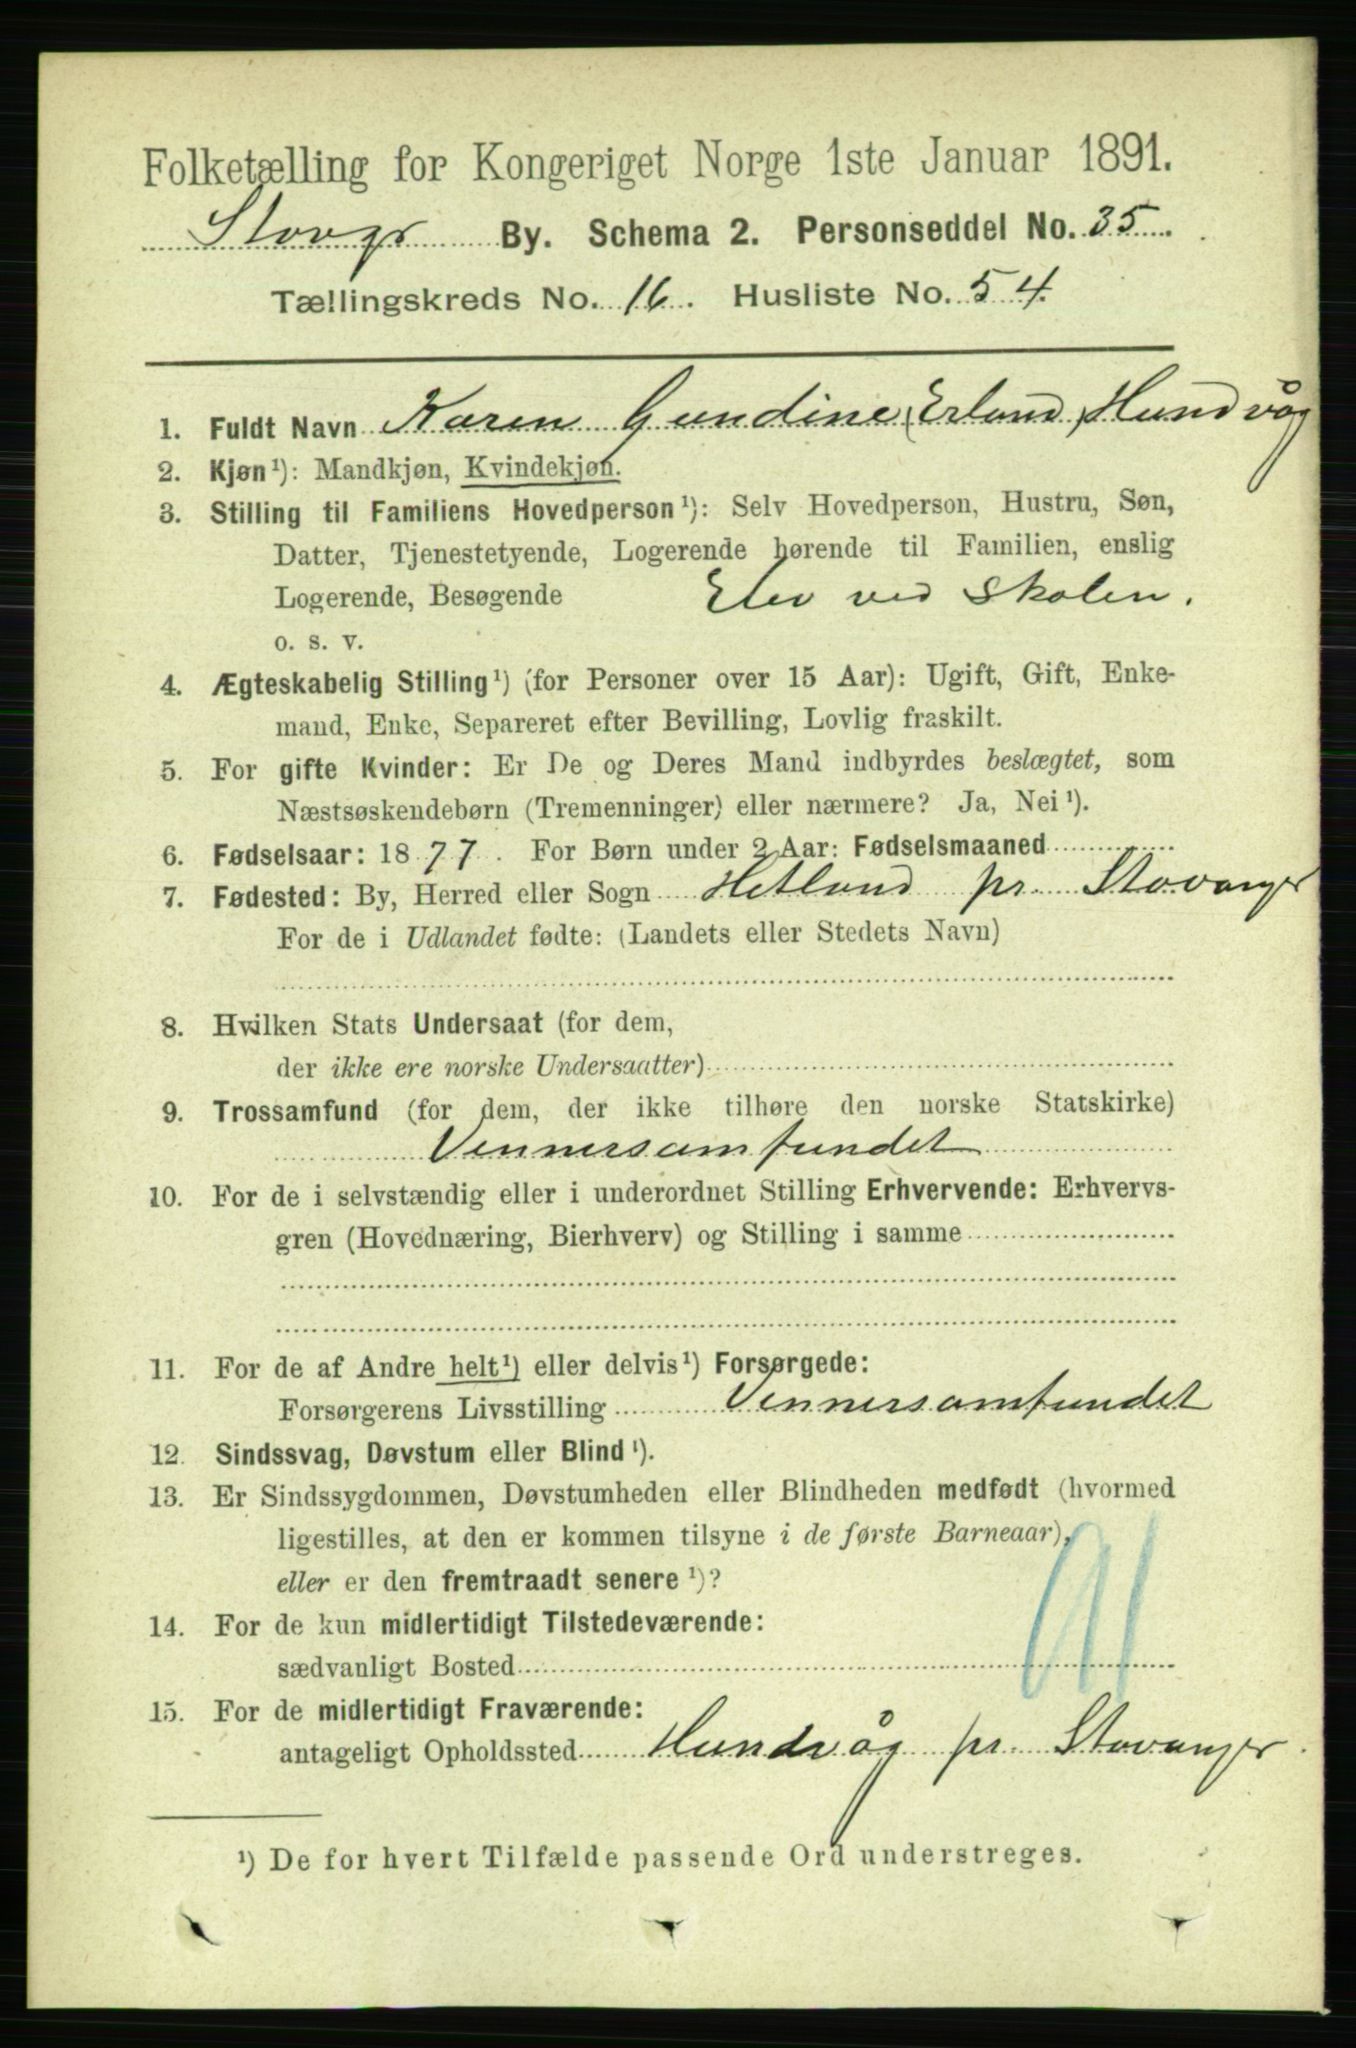 Folketælling for Kongeriget Norge 1ste Januar 1891.
Stavgr By. Schema 2. Personseddel No. 35
Tællingskreds No. 16. Husliste No. 54.
1. Fuldt Navn Karen Gundine (Erland) Hundvåg
2. Kjøn¹): Mandkjøn, Kvindekjøn.
3. Stilling til Familiens Hovedperson¹): Selv Hovedperson, Hustru, Søn,
Datter, Tjenestetyende, Logerende hørende til Familien, enslig
Logerende, Besøgende Elev ved Skolen.
o. s. v.
4. Ægteskabelig Stilling¹) (for Personer over 15 Aar): Ugift, Gift, Enke-
mand, Enke, Separeret efter Bevilling, Lovlig fraskilt.
5. For gifte Kvinder: Er De og Deres Mand indbyrdes beslægtet, som
Næstsøskendebørn (Tremenninger) eller nærmere? Ja, Nei¹).
6. Fødselsaar: 1877. For Børn under 2 Aar: Fødselsmaaned
7. Fødested: By, Herred eller Sogn Hetland pr. Stavanger
For de i Udlandet fødte: (Landets eller Stedets Navn)
8. Hvilken Stats Undersaat (for dem,
der ikke ere norske Undersaatter)
9. Trossamfund (for dem, der ikke tilhøre den norske Statskirke)
Vennersamfundet
10. For de i selvstændig eller i underordnet Stilling Erhvervende: Erhvervs-
gren (Hovednæring, Bierhverv) og Stilling i samme
11. For de af Andre helt¹) eller delvis¹) Forsørgede:
Forsørgerens Livsstilling Vennersamfundet
12. Sindssvag, Døvstum eller Blind¹).
13. Er Sindssygdommen, Døvstumheden eller Blindheden medfødt (hvormed
ligestilles, at den er kommen tilsyne i de første Barneaar),
eller er den fremtraadt senere¹)?
14. For de kun midlertidigt Tilstedeværende:
sædvanligt Bosted
15. For de midlertidigt Fraværende:
antageligt Opholdssted Hundvåg pr. Stavanger.
¹) De for hvert Tilfælde passende Ord understreges.